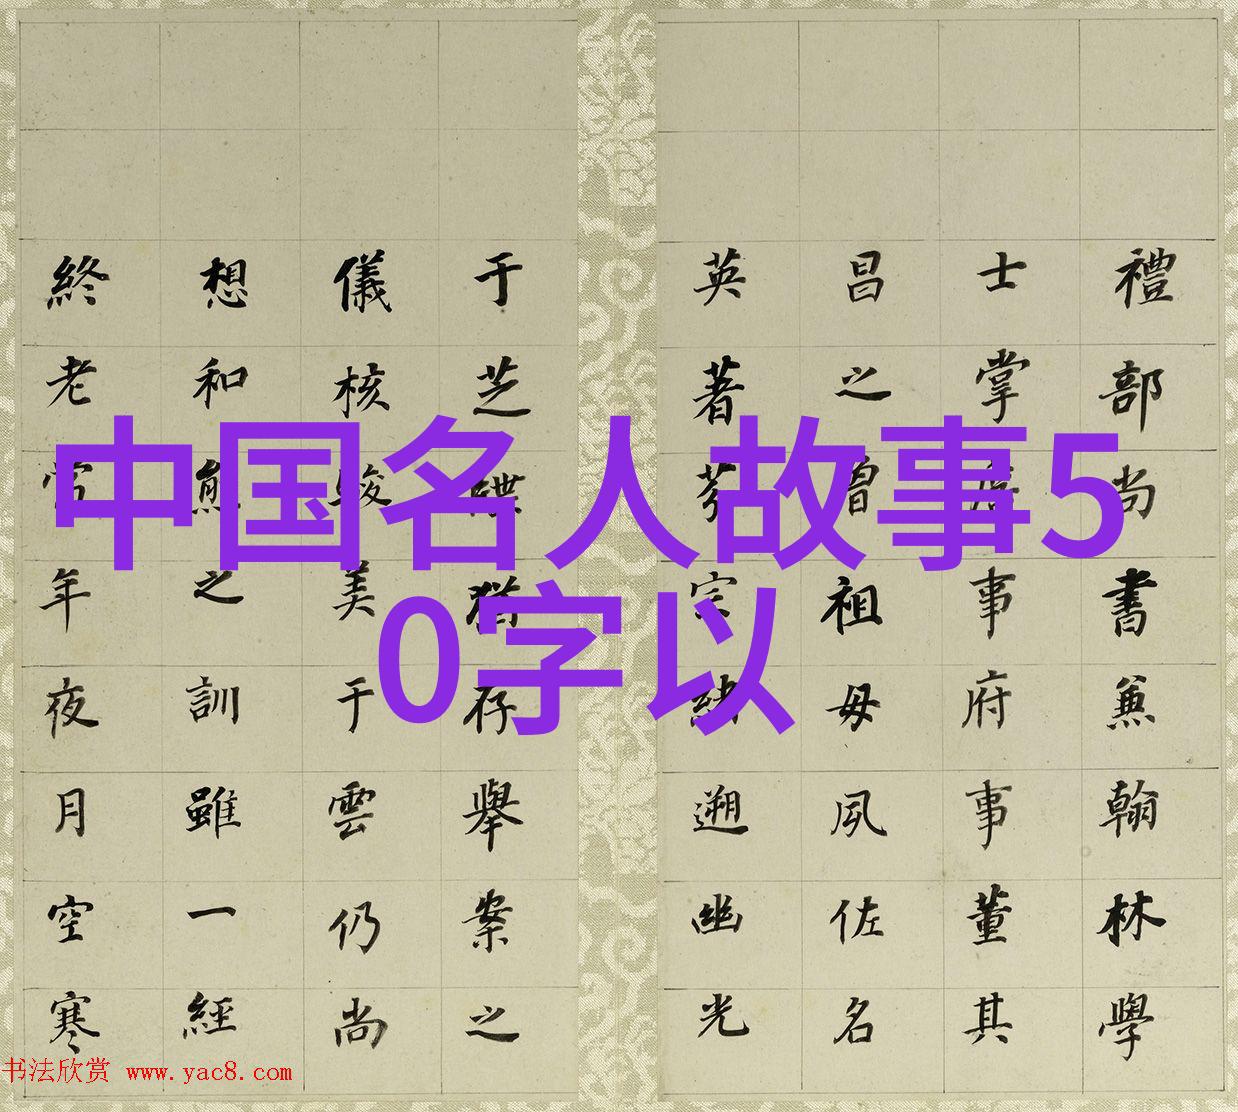 中国名人故事5
0字以
禮部尚書兼翰林學
士掌事府事董其
昌之曾祖母夙佐名
英著芬宗緒遡幽光
于芝猶存舉案之
儀核駿美于雲仍尚
想和熊之訓雖一經
終老常年夜月空寒
书法欣赏 www.yac8.com